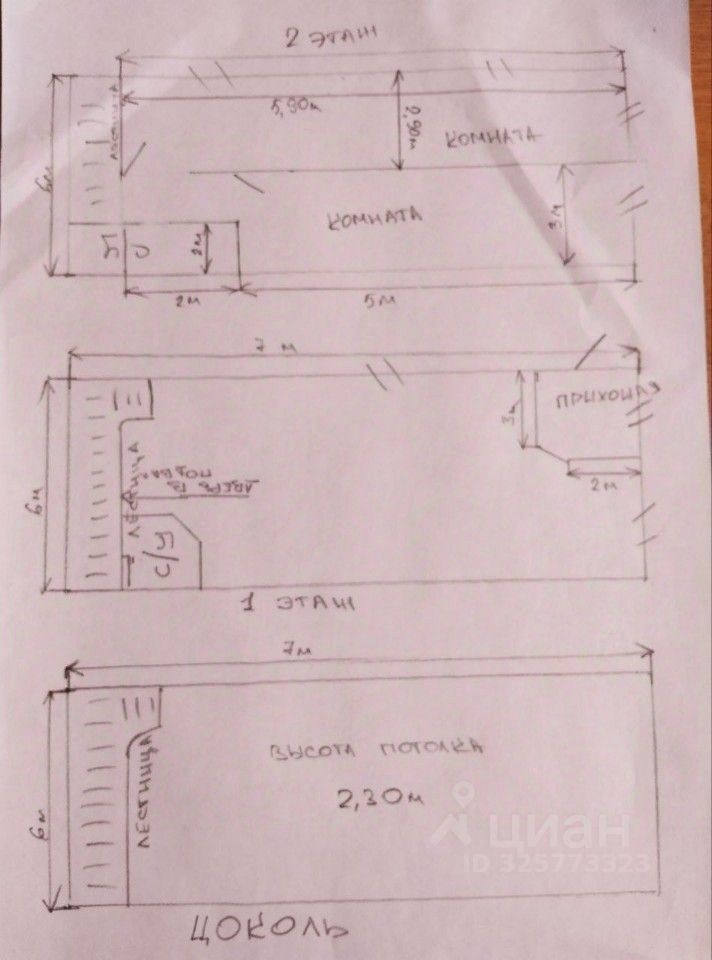 2 ЭТАЖ
ЛЕСТНИЦА
5,90м
2,90м
КОМНАТА
6м
КОМНАТА
3м
С
У
2м
2м
5м
7 м
ПРИХОЖАЯ
3м
6м
ЛЕСТНИЦА
ДВЕРЬ В
2м
С/У
1 ЭТАЖ
7м
ВЫСОТА ПОТОЛКА
2,30м
6м
ЛЕСТНИЦА
циан
ID 325773323
ЦОКОЛЬ